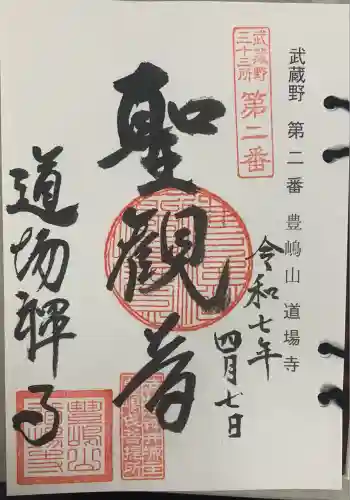 武蔵野 第二番 豊嶋山 道場寺
武蔵野
三十三所
第二番
令和七年
四月七日
聖觀音
道場禅寺
豊嶋山
道場寺